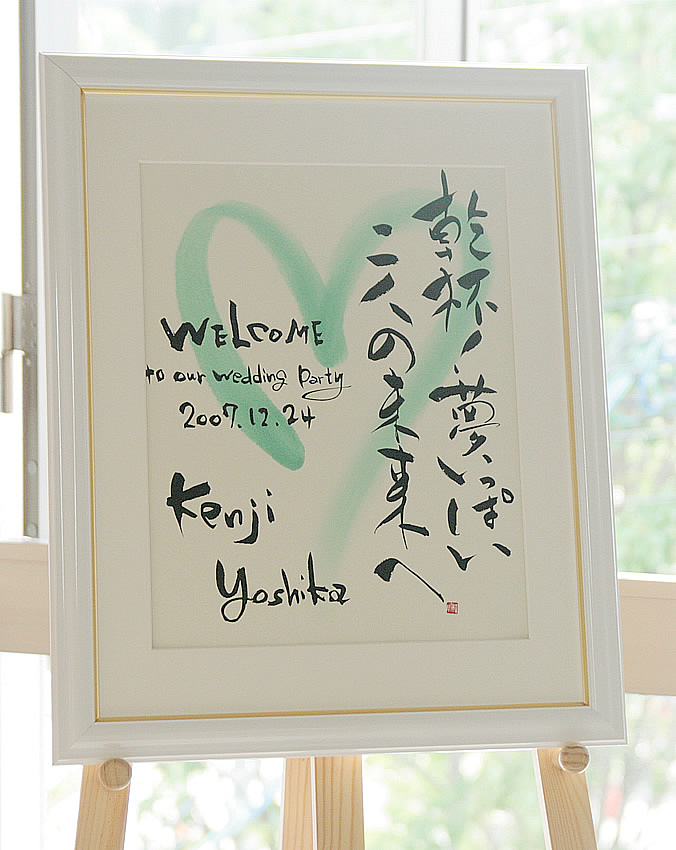 乾杯!夢いっぱい
二人の未来へ
WELCOME
to our wedding Party
2007.12.24
Kenji
Yoshika